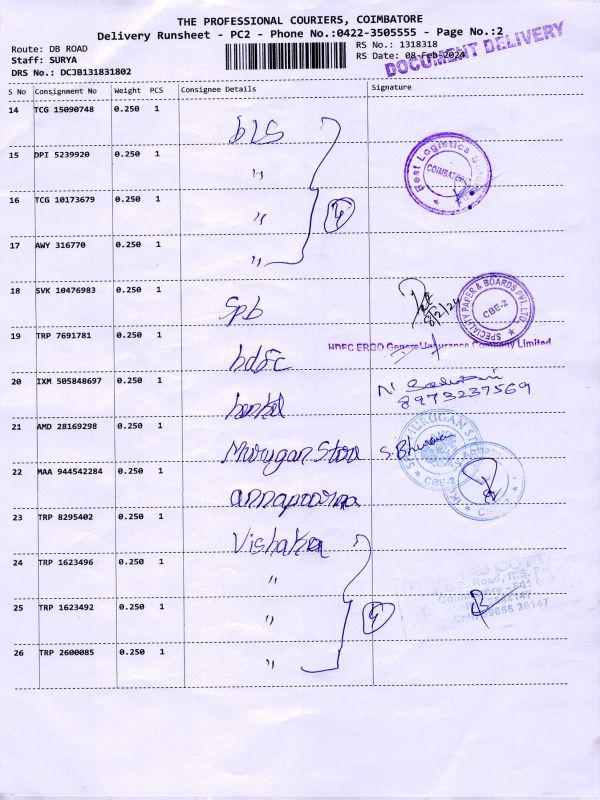 THE PROFESSIONAL COURIERS, COIMBATORE
Delivery Runsheet - PC2 - Phone No.:0422-3505555 - Page No.:2
Route: DB ROAD
Staff: SURYA
DRS No.: DCJB131831802
RS No.: 1318318
RS Date: 08-Feb-2024
DOCUMENT DELIVERY
S No Consignment No Weight PCS Consignee Details Signature
14 TCG 15090748 0.250 1
bLS
15 DPI 5239920 0.250 1
"
Best Logistics
COIMBATORE
16 TCG 10173679 0.250 1
"
4
17 AWY 316770 0.250 1
"
18 SVK 10476983 0.250 1
Spb
8/2/24
SPECIALITY PAPER & BOARDS PVT. LTD.
CBE-2
19 TRP 7691781 0.250 1
hdfc
HDFC ERGO General Insurance Company Limited
20 IXM 505848697 0.250 1
8973237569
21 AMD 28169298 0.250 1
Murugan Store
MURUGAN
CBE-2
22 MAA 944542284 0.250 1
annapoorna
23 TRP 8295402 0.250 1
Vishaka
24 TRP 1623496 0.250 1
"
25 TRP 1623492 0.250 1
"
4
26 TRP 2600085 0.250 1
"